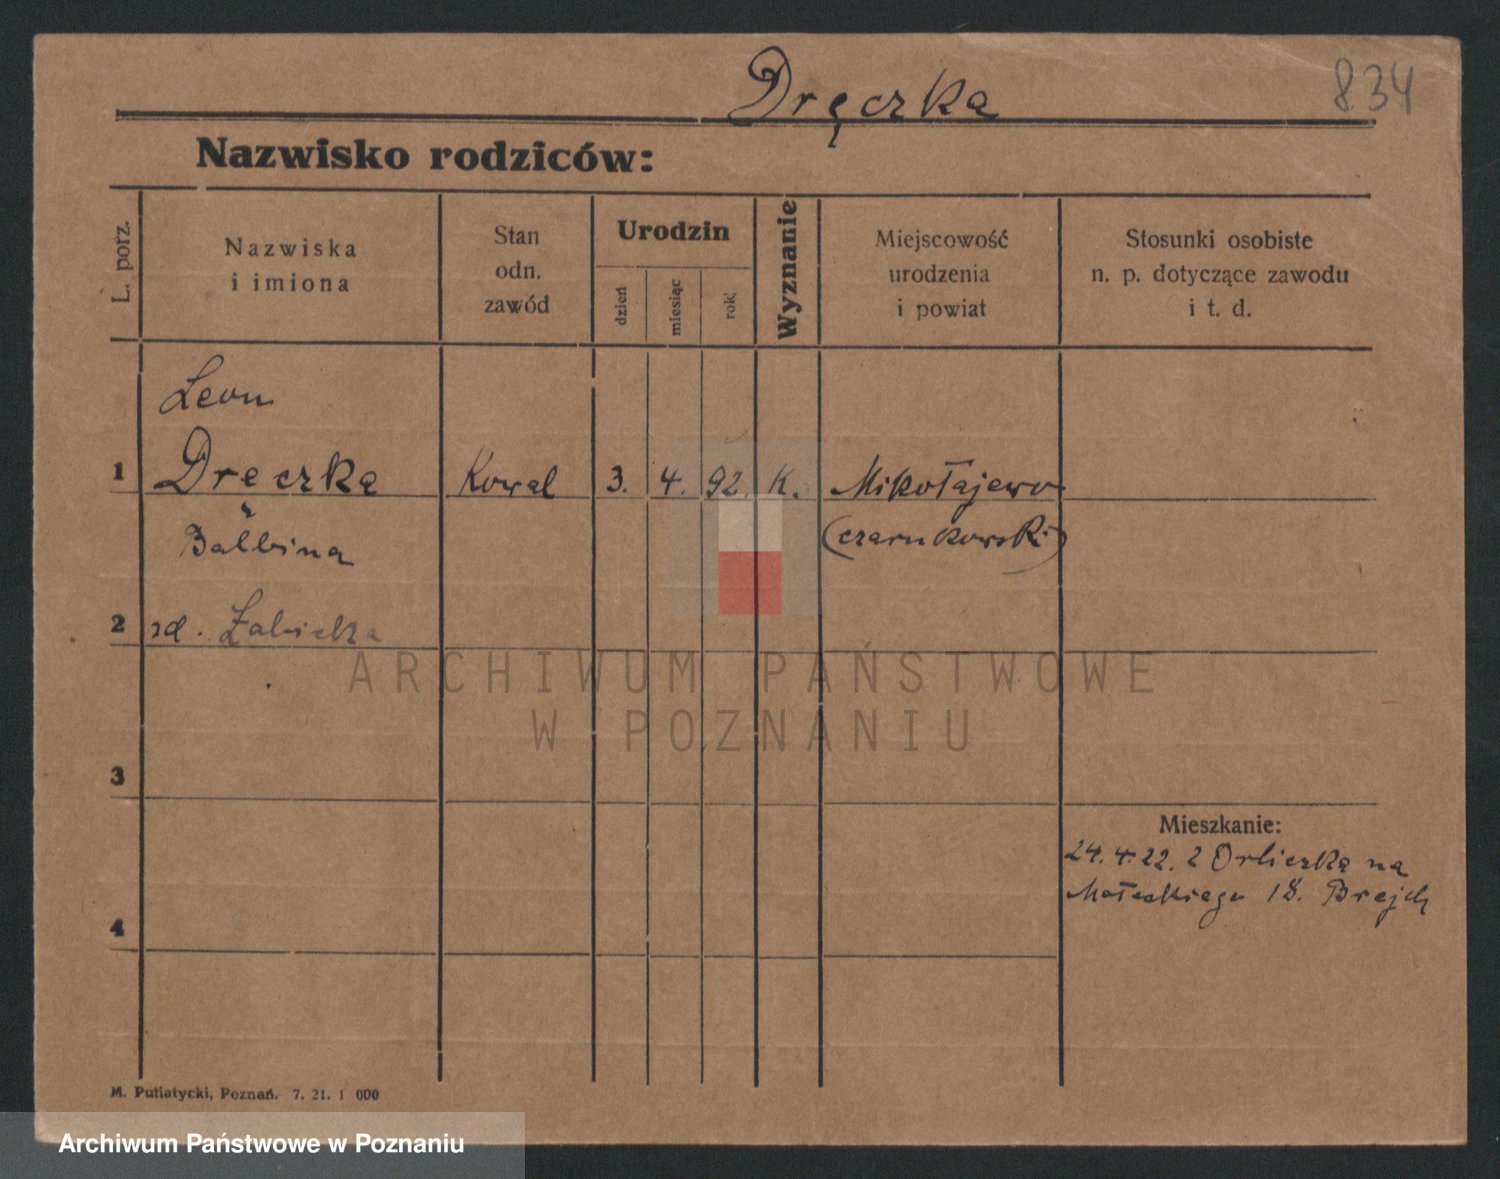 Dręczka
834
Nazwisko rodziców:
L. porz.
Nazwiska
i imiona
Stan
odn.
zawód
Urodzin
dzień
miesiąc
rok
Wyznanie
Miejscowość
urodzenia
i powiat
Stosunki osobiste
n. p. dotyczące zawodu
i t. d.
Leon
1 Dręczka Kowal 3. 4. 92. K. Mikołajewo
(czarnkowski)
Balbina
2 zd. Żabicka
ARCHIWUM PAŃSTWOWE
W POZNANIU
3
Mieszkanie:
24.4.22. z Orliczka na
Małeckiego 18. Brejch
4
M. Putiatycki, Poznań. 7. 21. 1 000
Archiwum Państwowe w Poznaniu